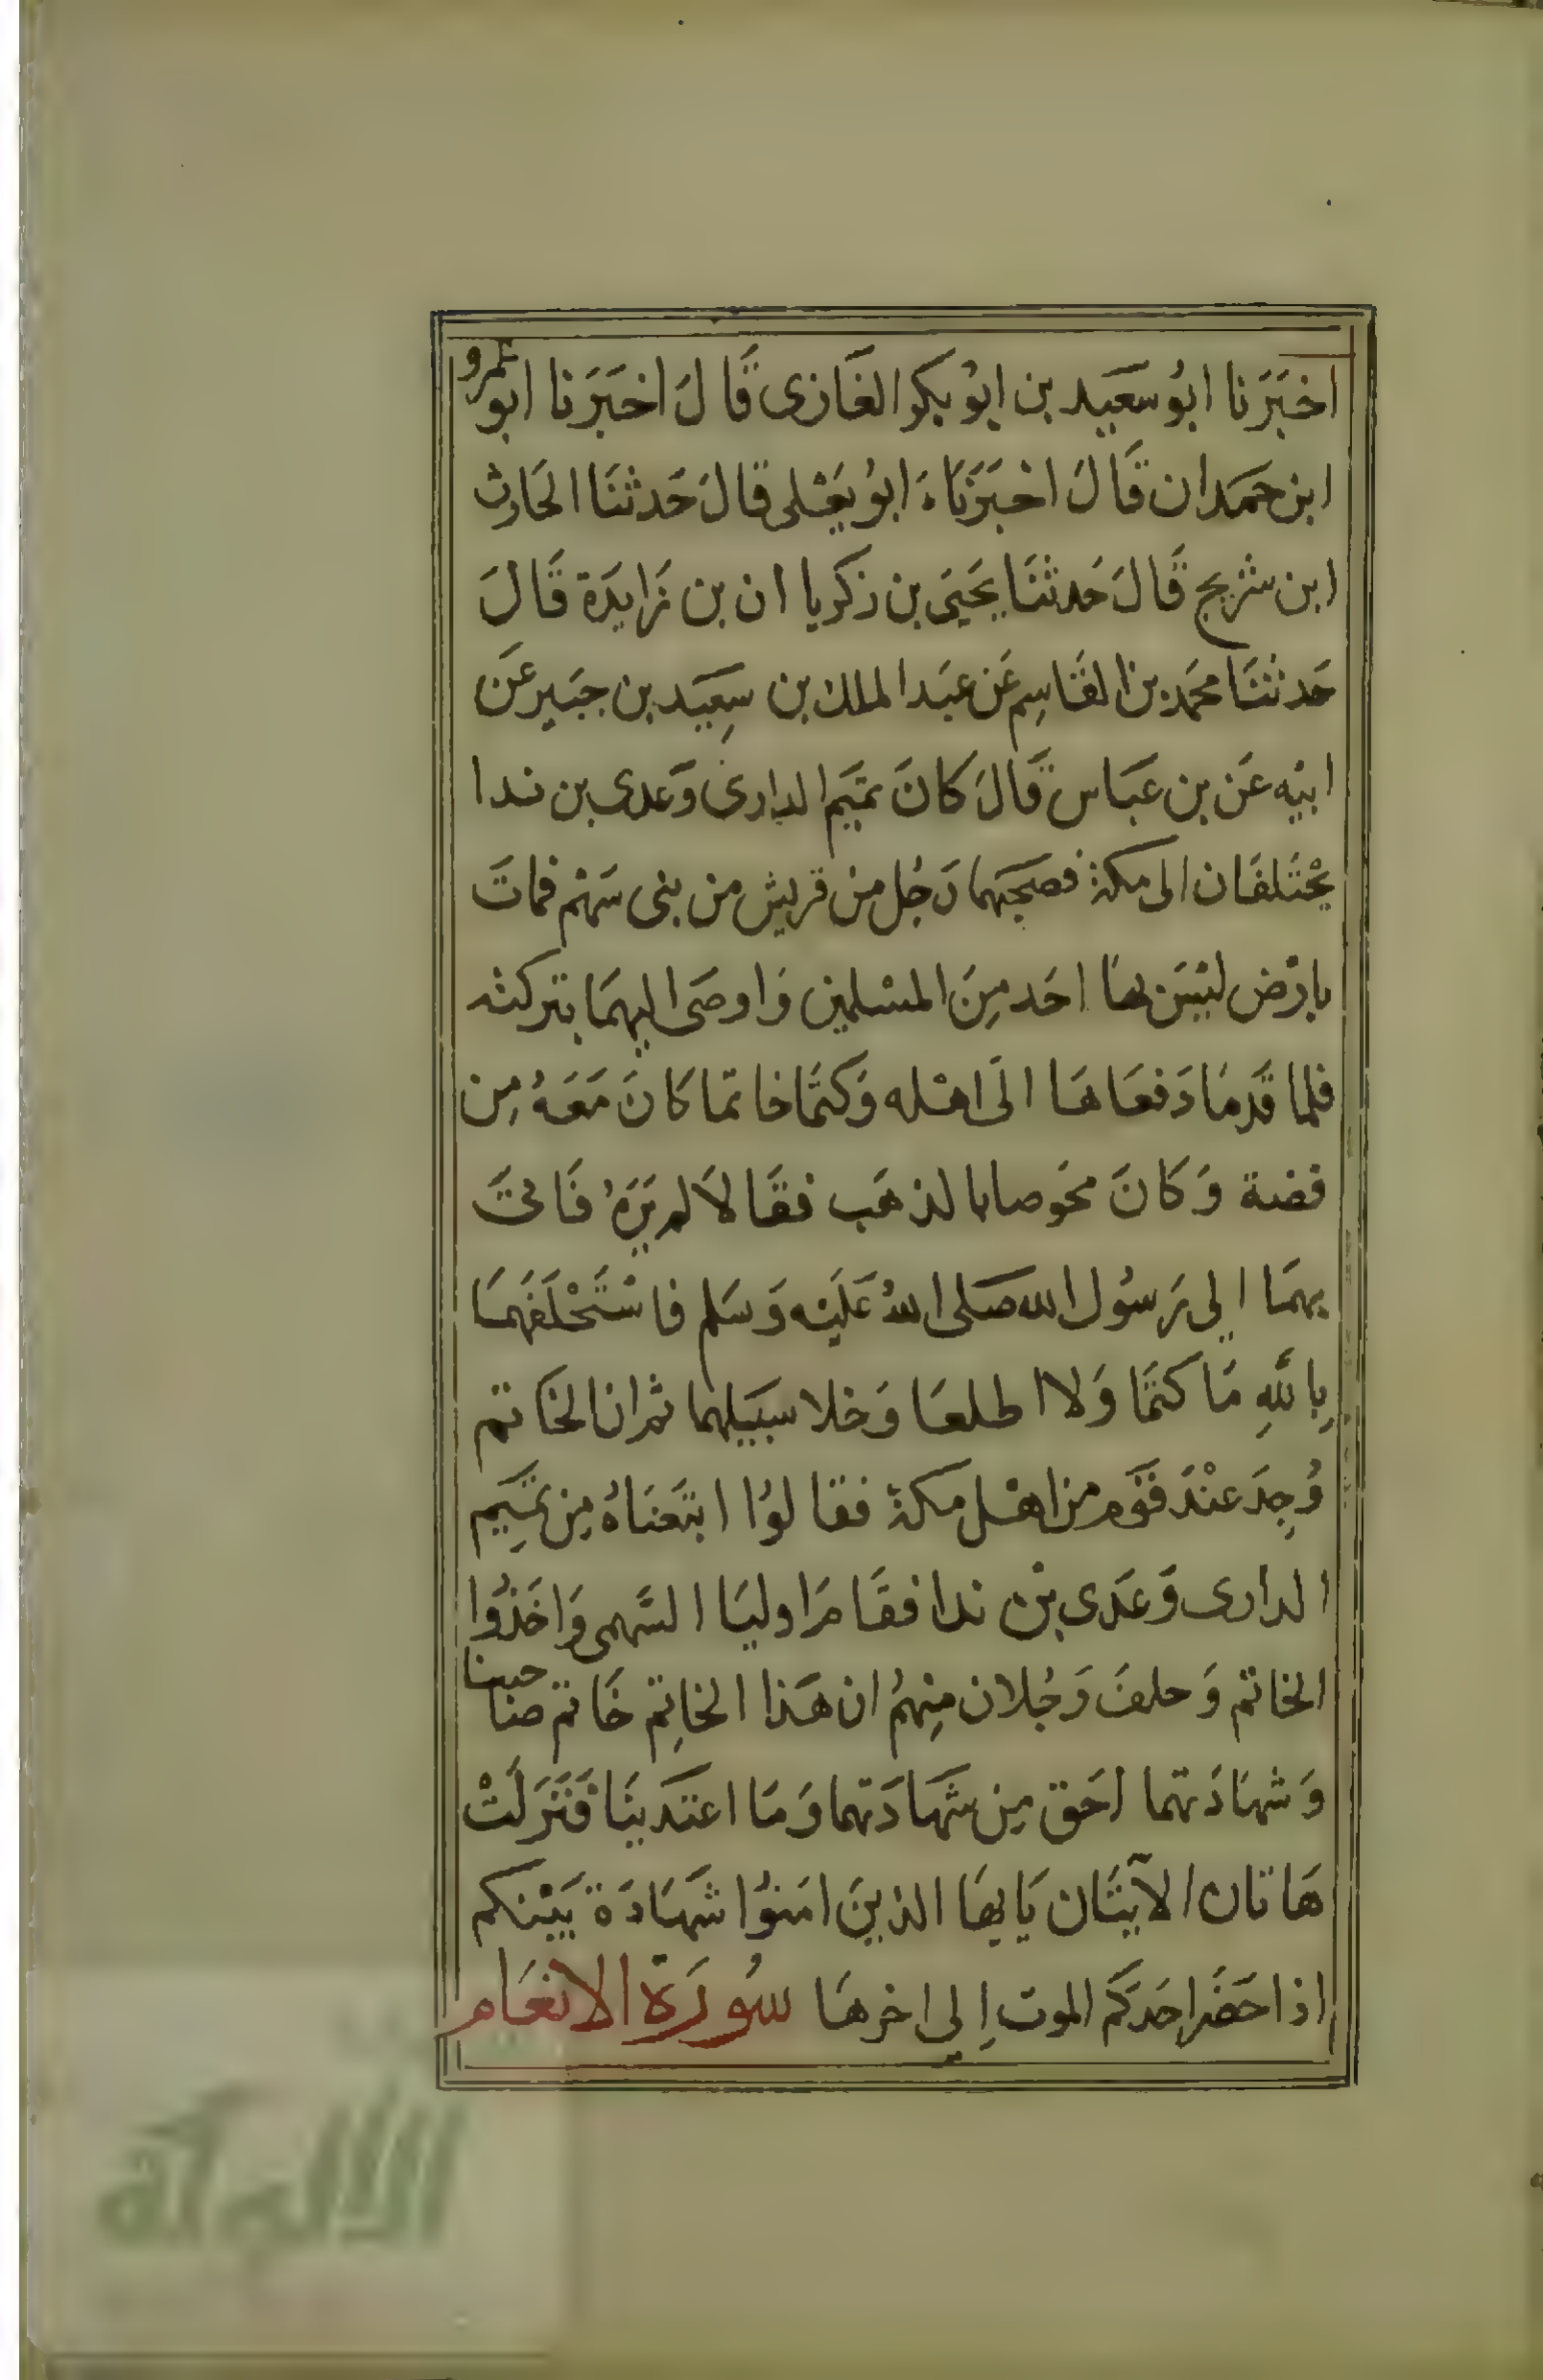 اخبَرَنا ابُو سَعَيد بن ابُو بكوالغَازى قَالَ اخبَرَنا ابو عمرو
ابن حمَدان قَالَ اخبَرَنَاءَ ابوُ يَعْلى قالَ حَدثنَا الحَارث
ابن شريح قَالَ حَدثنَا يَحيَى بن زكريا ان بن زَايدَة قَالَ
حَدثنَا محمَد بن القَاسِم عَن عبَد الملك بن سِعيَد بن جبَير عَن
ابيْه عَن بن عبَاس قَالَ كانَ تميَم الدارىَ وَعدى بن ندا
يختَلفَان الى مكة فصحبَهما رَجُل من قريش من بنى سَهْم فماتَ
بارْض ليْسَ بهَا احَد مِنَ المسْلمين وَاوصَى اليهمَا بتركته
فلما قَدمَا دَفعَاهَا الَى اهْله وَكتمَا خاتما كانَ مَعَهُ مِن
فضة وَكانَ مخَوصا بالذهَب فقَالاَ لم نرَهُ فَاتىَ
بهمَا الِى رَسُول الله صَلى اللهُ عَليْه وَسَلم فاسْتَحْلَفَهمَا
بِاللهِ مَا كتمَا وَلا اطلعَا وَخلا سبَيلهما ثم ان الخَاتم
وُجِدَ عنْدَ قَوم من اهْل مكة فقالوُا ابتَعنَاهُ مِن تميِم
الدارى وَعَدى بْن ندا فقَامَ اوليَا السَهمى وَاخَذُوا
الخاتم وَحلفَ رَجُلان مِنهمُ ان هَذا الخاتِم خَاتم صَاحبنا
وَشهَادَتهما احَق مِن شَهَادَتهما وَمَا اعتَديَنَا فَنَزلَتْ
هَاتان الآيتَان يَايهَا الذينَ امَنوُا شَهَادَة بَيْنكم
اذا حَضَر احَدَكم الموت اِلى اخرهَا سُورَة الانعَام
الألوكة